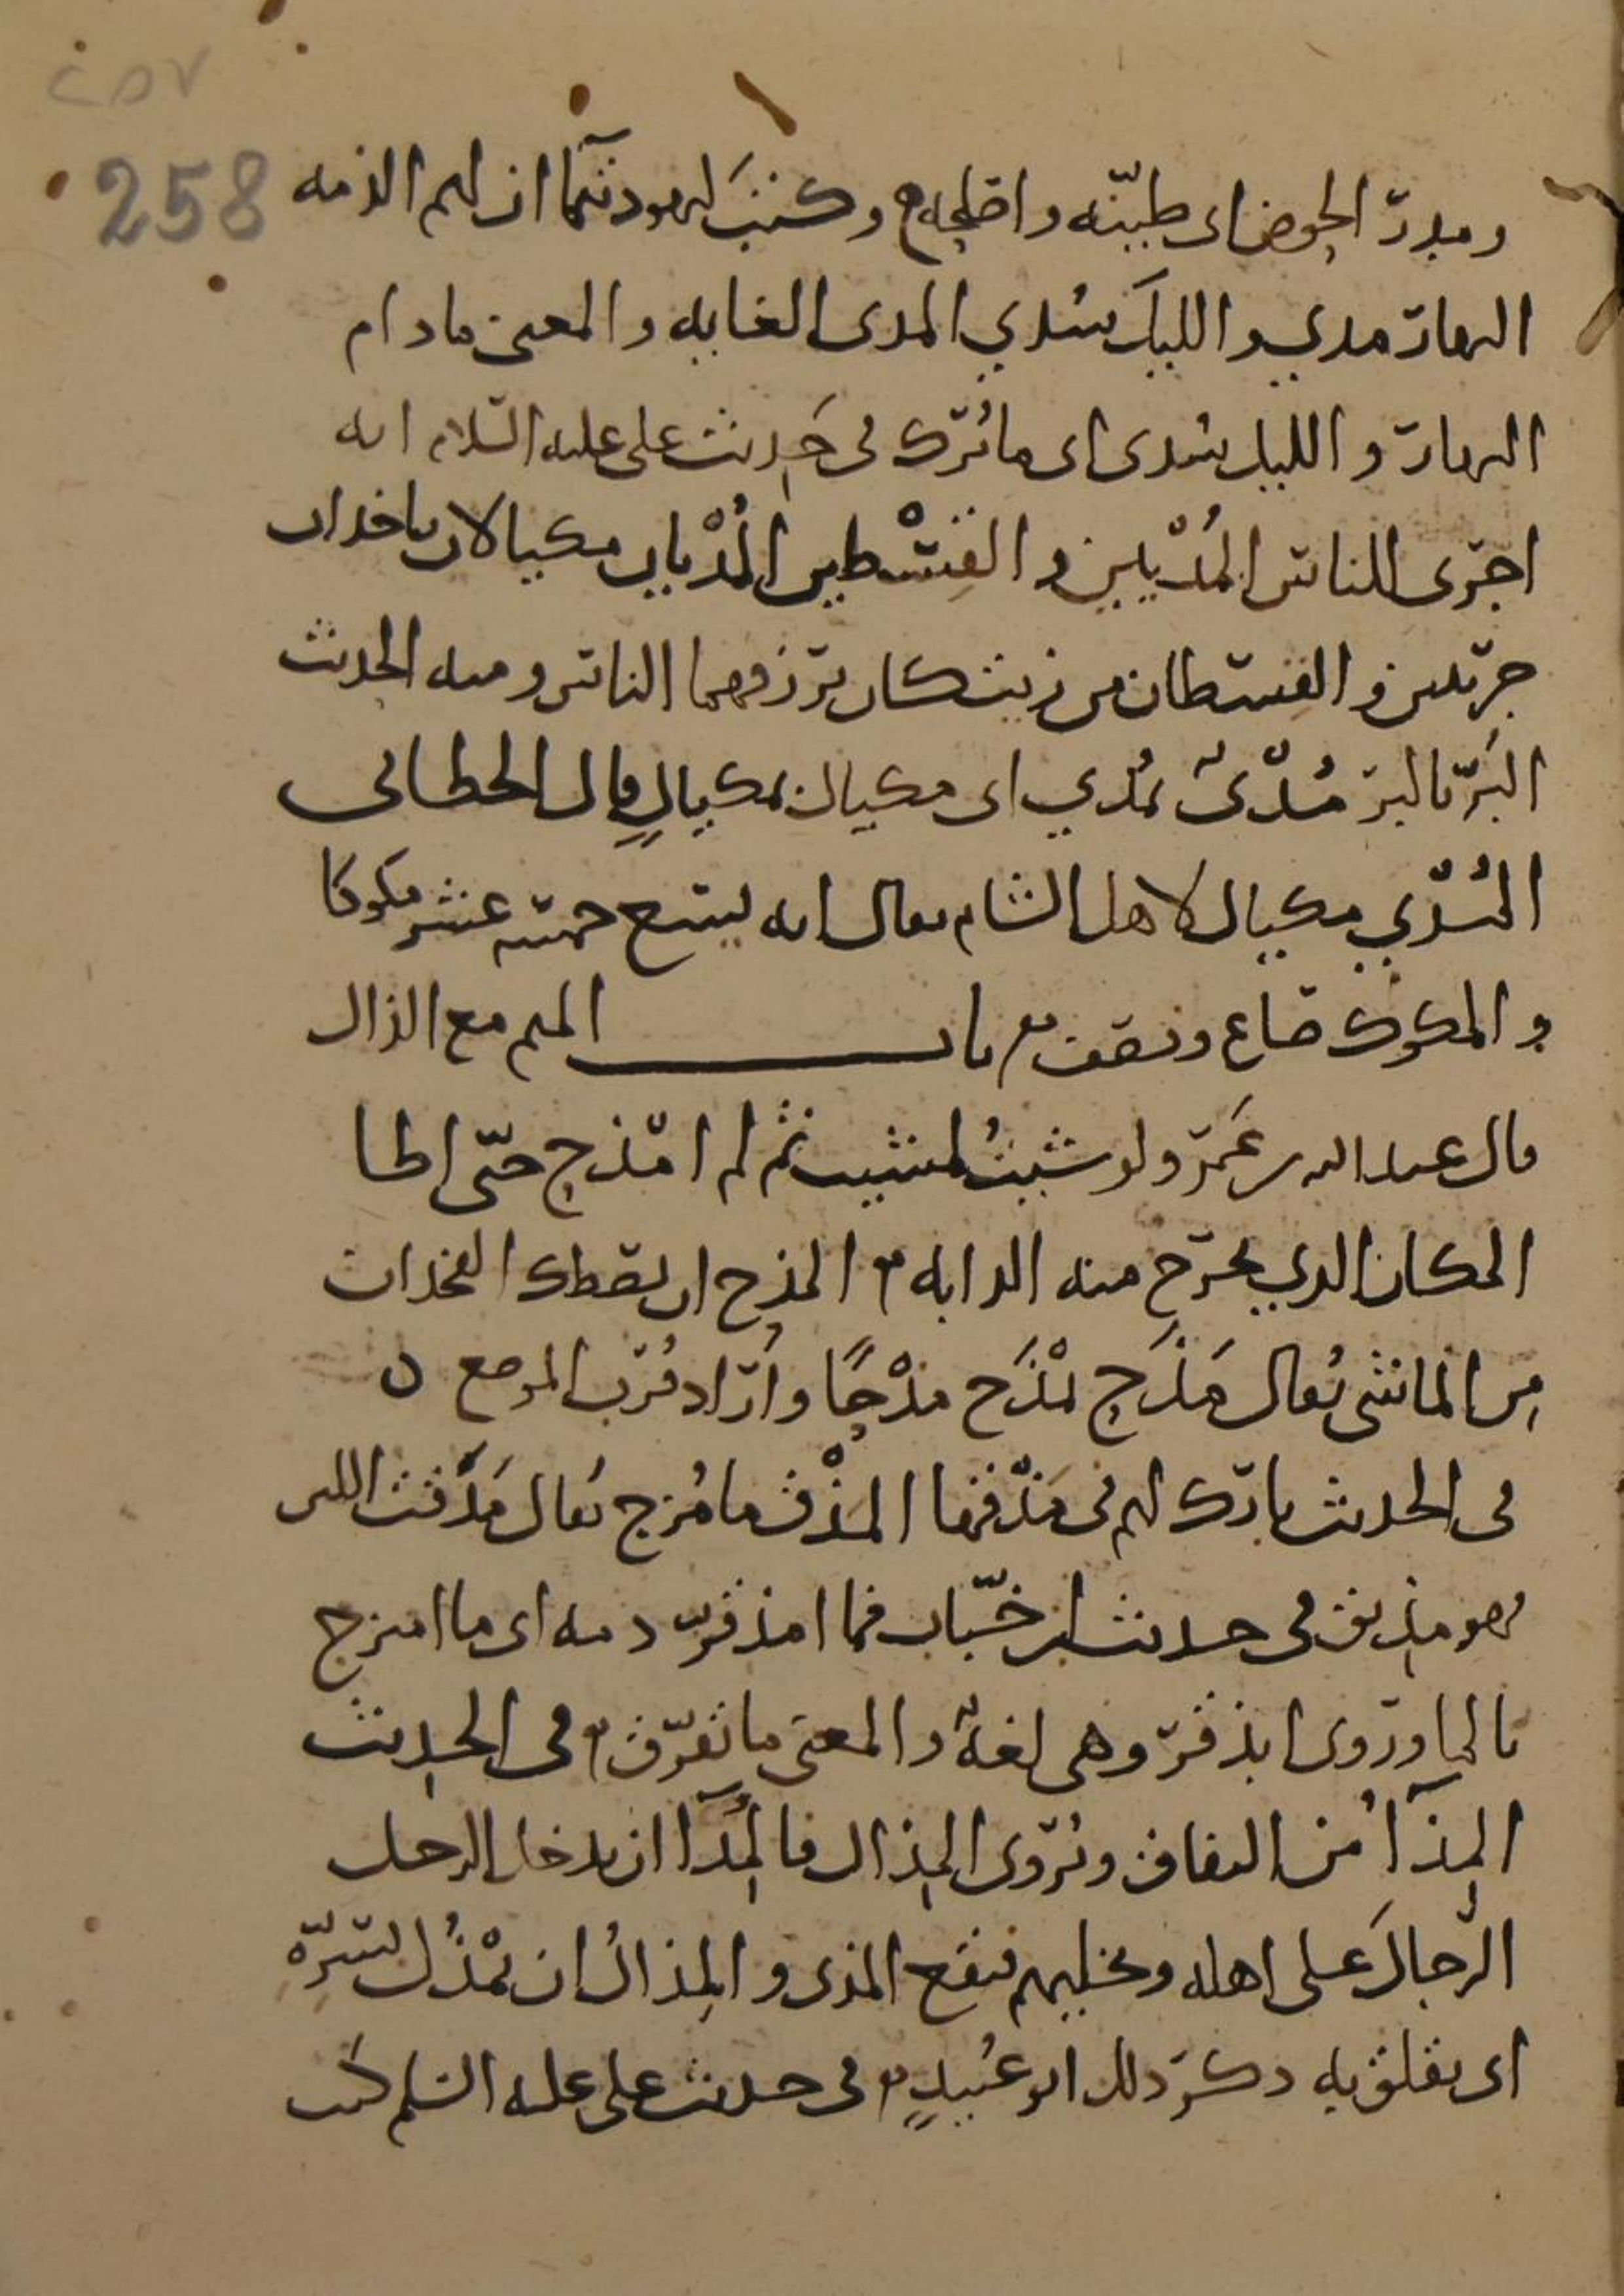 ٢٥٧
258
ومدر الحوض اى طينه واصلحه م وكتب ليهود تيما ان لهم الذمه
النهار مدي والليل سُدي المدى الغايه والمعنى مادام
النهار والليل سُدى اى ما تُرك فى حَديث على عليه السلام انه
اجرى للناس المُدْيين والقِسْطين المُدْيان مكيالان ياخذان
جريبين والقسطان من زيت كان يرزقهما الناس ومنه الحديث
البُرّ بالبر مُدْىٌ بمُدي اى مكيال بمكيالٍ قال الخطابى
المُدْي مكيال لاهل الشام يقال انه يسع خمسه عشر مكوكا
والمكوك صاع ونصف م باب الميم مع الذال
قال عبد الله بن عَمرو لو شيتُ لمشيت ثم لم امذح حتّى اطا
المكان الذي يخرج منه الدابه م المذح ان يصطك الفخذان
مِن الماشى يُقال مَذَحِ يمْذَح مذْحًا واَراد قُرب الموضع ٥
فى الحديث بارك لهم فى مَذْقها المذْق ما مُزج يُقال مَذَقت اللبن
فهو مذيق فى حديث ابن خبّاب فما امذقرّ دمه اى ما امتزج
بالما وروى ابذقرّ وهى لغةٌ والمعنى ما تفرّق م فى الحديث
المِذآ من النفاق ويُروى المِذال فالمِذآ ان يدخل الرجل
الرِّجالَ على اهله ويخليهم فيقع المذى والمِذالُ ان يمْذُل بسرّه
اى يقلق به ذكرَ ذلك ابو عُبيدٍ م فى حديث على عليه السلم كنت